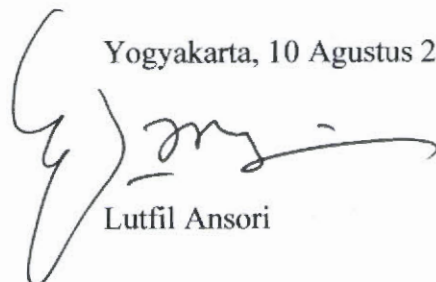 Yogyakarta, 10 Agustus 2
Lutfil Ansori